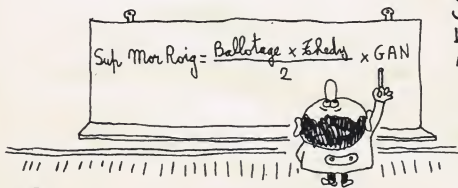 Sup Mor Roig = Ballotage x Thedy / 2 x GAN